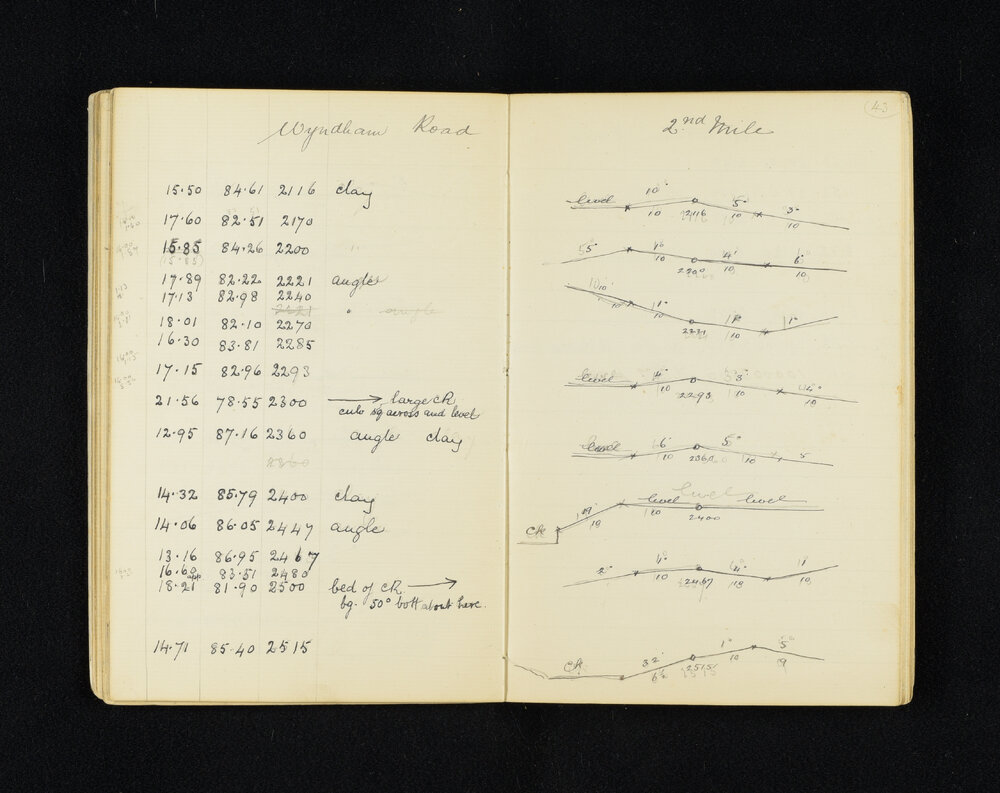 Wyndham Road
15.50 84.61 2116 clay
17.60 82.51 2170
15.85 84.26 2200
(15.85)
17.89 82.22 2221 angle
17.13 82.98 2240
2221 " angle
18.01 82.10 2270
16.30 83.81 2285
17.15 82.96 2293
21.56 78.55 2300 → large ck
across and level
12.95 87.16 2360 angle clay
2360
14.32 85.79 2400 clay
14.06 86.05 2447 angle
13.16 86.95 2467
16.60 83.51 2480
app
18.21 81.90 2500 bed of ck →
bg. 50° bott about here.
14.71 85.40 2515
43
2nd Mile
level 10° 5° 3°
10 2116 10 10
4° 6°
10 2200 10 10
10 1° 1°
2221 10
level 4° 3° 4°
10 2293 10
level 6° 5°
10 2360 10 5
level
level level
10 10 2400
ck
2° 4° 4° 1°
10 2467 10
1° 5°
ck 32° 2515 10
6½